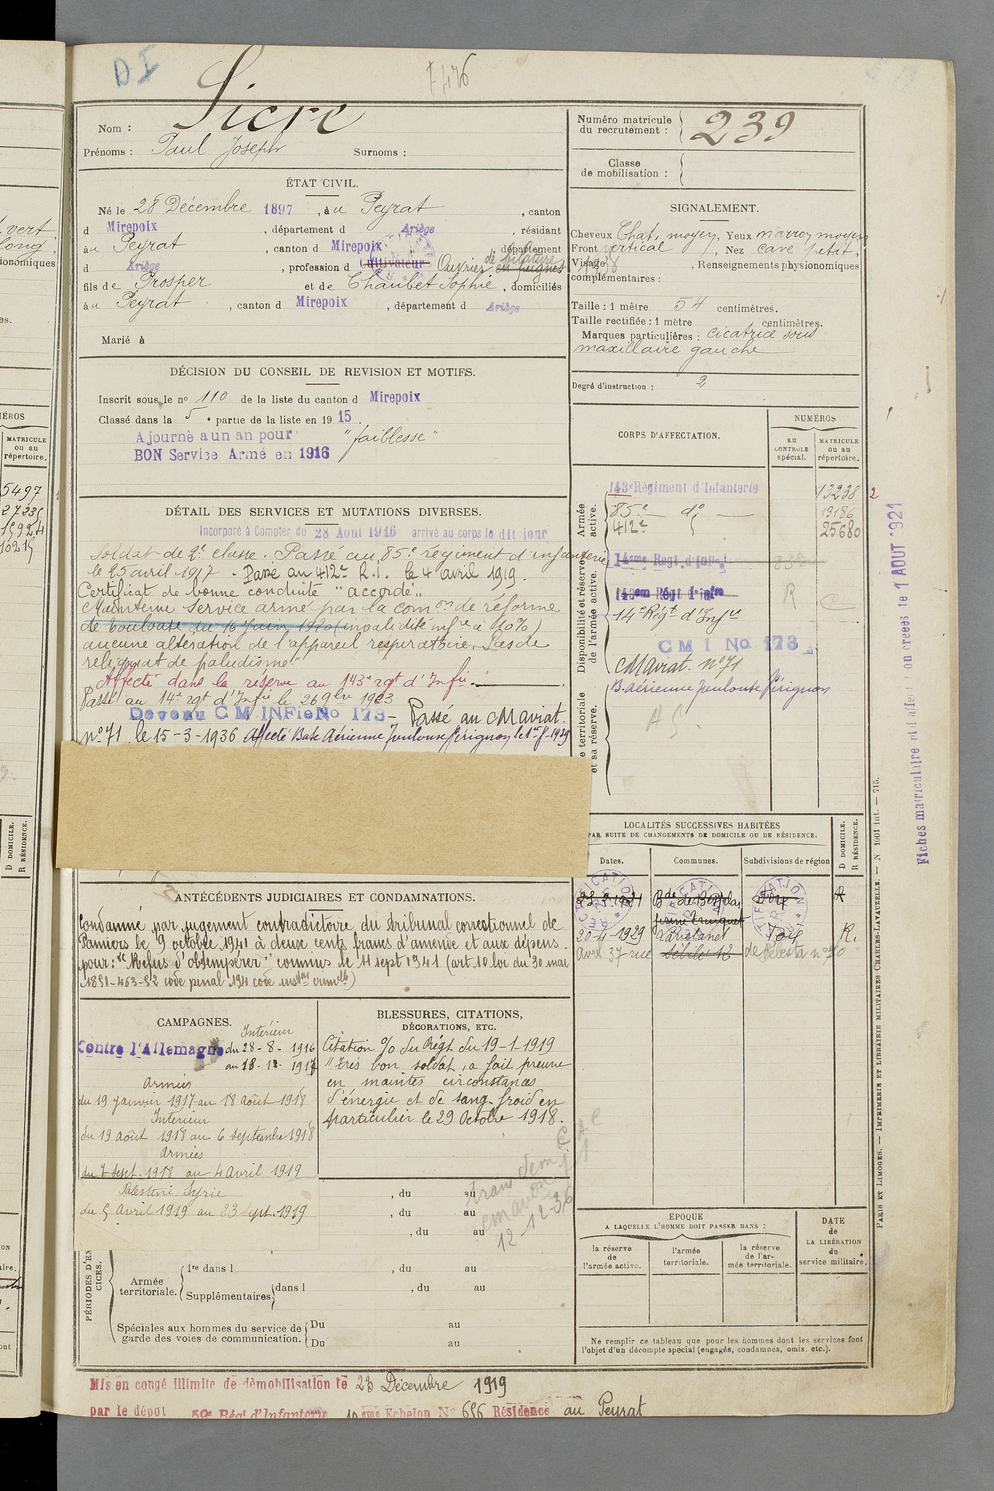 DI
7476
Nom : Sicre
Prénoms : Paul Joseph Surnoms :
Numéro matricule
du recrutement : 239
Classe
de mobilisation :
ÉTAT CIVIL.
Né le 28 Décembre 1897, à u Peyrat, canton
d Mirepoix, département d Ariège, résidant
à u Peyrat, canton d Mirepoix, département
d Ariège, profession d Cultivateur Ouvrier en peignes
de filature
fils de Prosper et de Chaubet Sophie, domiciliés
à u Peyrat, canton d Mirepoix, département d Ariège
Marié à
SIGNALEMENT.
Cheveux Chat. moyen, Yeux marron moyen
Front vertical, Nez cave petit.
Visage, Renseignements physionomiques
complémentaires :
Taille : 1 mètre 54 centimètres.
Taille rectifiée : 1 mètre centimètres.
Marques particulières : cicatrice sous
maxillaire gauche
Degré d'instruction : 2
DÉCISION DU CONSEIL DE REVISION ET MOTIFS.
Inscrit sous le n° 110 de la liste du canton d Mirepoix
Classé dans la 5e partie de la liste en 1915.
Ajourné a un an pour "faiblesse"
BON Service Armé en 1916
DÉTAIL DES SERVICES ET MUTATIONS DIVERSES.
Incorporé à Compter du 28 Août 1916 arrivé au corps le dit jour
Soldat de 2e classe. Passé au 85.e régiment d'infanterie
le 25 avril 1917. - Passé au 412e R.I. le 4 avril 1919.
Certificat de bonne conduite "accordé"
Maintenu service armé par la comon de réforme
de Toulouse du 10 Juin 1920 (invalidité infre à 10%)
aucune altération de l'appareil respiratoire. Pas de
reliquat de paludisme.
Affecté dans la réserve au 143e rgt d'Infie
Passé au 14e rgt d'Infie le 26 9bre 1923
Devenu C M INFie No 173 - Passé au C Mariat.
n° 71 le 15-3-1936 Affecté Base Aérienne Toulouse Pérignon le
CORPS D'AFFECTATION.
NUMÉROS
au
CONTROLE
spécial.
MATRICULE
ou au
répertoire.
Armée
active.
143e Régiment d'Infanterie 13238 2
85.e - do - 19186
412e 25680
Disponibilité et réserve
de l'armée active.
14eme Regt. d'Infie
143em Régt d'Infie R
14e Régt d'Infie
C M I No 173
C Mariat. n° 71
B. aérienne Toulouse Pérignon
e territoriale
et sa réserve.
Fiches matriculaire et d'affectation créées le 1 AOUT 1921
LOCALITÉS SUCCESSIVES HABITÉES
PAR SUITE DE CHANGEMENTS DE DOMICILE OU DE RÉSIDENCE.
Dates. Communes. Subdivisions de région
D DOMICILE.
R RÉSIDENCE.
RECTIFICATION
20-4-1929 Lavelanet Foix R.
Avril 37 rue de Bélesta n°
ANTÉCÉDENTS JUDICIAIRES ET CONDAMNATIONS.
Condamné par jugement contradictoire du tribunal correctionnel de
Pamiers le 9 octobre 1941 à deux cents francs d'amende et aux dépens.
pour : "Refus d'obtempérer" commis le 11 sept 1941 (art. 10 loi du 30 mai
1851-463-52 code penal, 194 code instion crimelle)
CAMPAGNES.
Contre l'Allemagne
Intérieur
du 28-8-1916
au 18-1-1917
Armées
du 19 janvier 1917 au 18 août 1918
Intérieur
du 19 août 1918 au 6 septembre 1918
Armées
du 7 sept. 1918 au 4 avril 1919
Palestine Syrie
du 5 avril 1919 au 23 sept. 1919
BLESSURES, CITATIONS,
DÉCORATIONS, ETC.
Citation % du Régt du 19-1-1919
"Très bon soldat, a fait preuve
en maintes circonstances
d'énergie et de sang-froid en
particulier le 29 Octobre 1918.
12-12-36
, du au
, du au
, du au
PÉRIODES D'EXERCICES.
Armée
territoriale.
1re dans l , du au
Supplémentaires dans l , du au
Spéciales aux hommes du service de
garde des voies de communication.
Du au
Du au
ÉPOQUE
A LAQUELLE L'HOMME DOIT PASSER DANS :
la réserve
de
l'armée active.
l'armée
territoriale.
la réserve
de l'ar-
mée territoriale.
DATE
de
LA LIBÉRATION
du
service militaire.
Ne remplir ce tableau que pour les hommes dont les services font
l'objet d'un décompte spécial (engagés, condamnés, omis, etc.).
PARIS ET LIMOGES. — IMPRIMERIE ET LIBRAIRIE MILITAIRES CHARLES-LAVAUZELLE. — N 1901 int. — 715.
Mis en congé illimité de démobilisation le 23 Décembre 1919
par le dépôt 59e Régt d'Infanterie 10eme Echelon No 656 Résidence au Peyrat